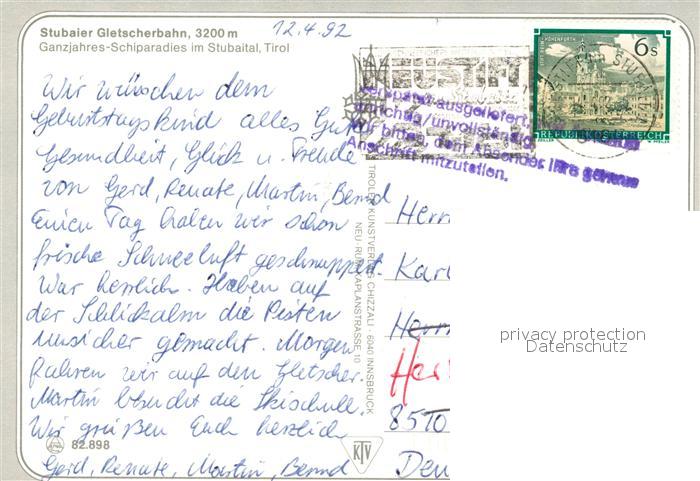 Stubaier Gletscherbahn, 3200 m
Ganzjahres-Schiparadies im Stubaital, Tirol
12.4.92
Wir wünschen dem
Geburtstagskind alles Gute
Gesundheit, Glück u. Freude
von Gerd, Renate, Martin, Bernd
Einen Tag haben wir schon
frische Schneeluft geschnuppert.
War herrlich. Haben auf
der Schlickalm die Pisten
unsicher gemacht. Morgen
fahren wir auf den Gletscher.
Martin besucht die Skischule.
Wir grüßen Euch herzlich
Gerd, Renate, Martin, Bernd
82.898
TIROLER KUNSTVERLAG CHIZZALI · 6040 INNSBRUCK
NEU-RUM, KAPLANSTRASSE 10
KTV
NEUSTIFT
6 S
REPUBLIK ÖSTERREICH
verspätet ausgeliefert,
unrichtig/unvollständig
Wir bitten, dem Absender Ihre genaue
Anschrift mitzuteilen.
Herr
Kar
Herr
Her
8510
Deu
privacy protection
Datenschutz